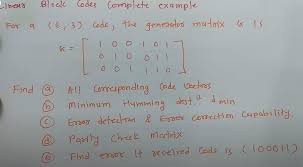 Linear Block Codes Complete example
For a (6,3) code, the generator matrix G is
G = [ 1 0 0 1 0 1
0 1 0 0 1 1
0 0 1 1 1 0 ]
Find (a) All corresponding Code Vectors
(b) Minimum Hamming dist. d min
(c) Error detection & Error correction Capability.
(d) Parity Check Matrix
(e) Find error it received code is (100011)